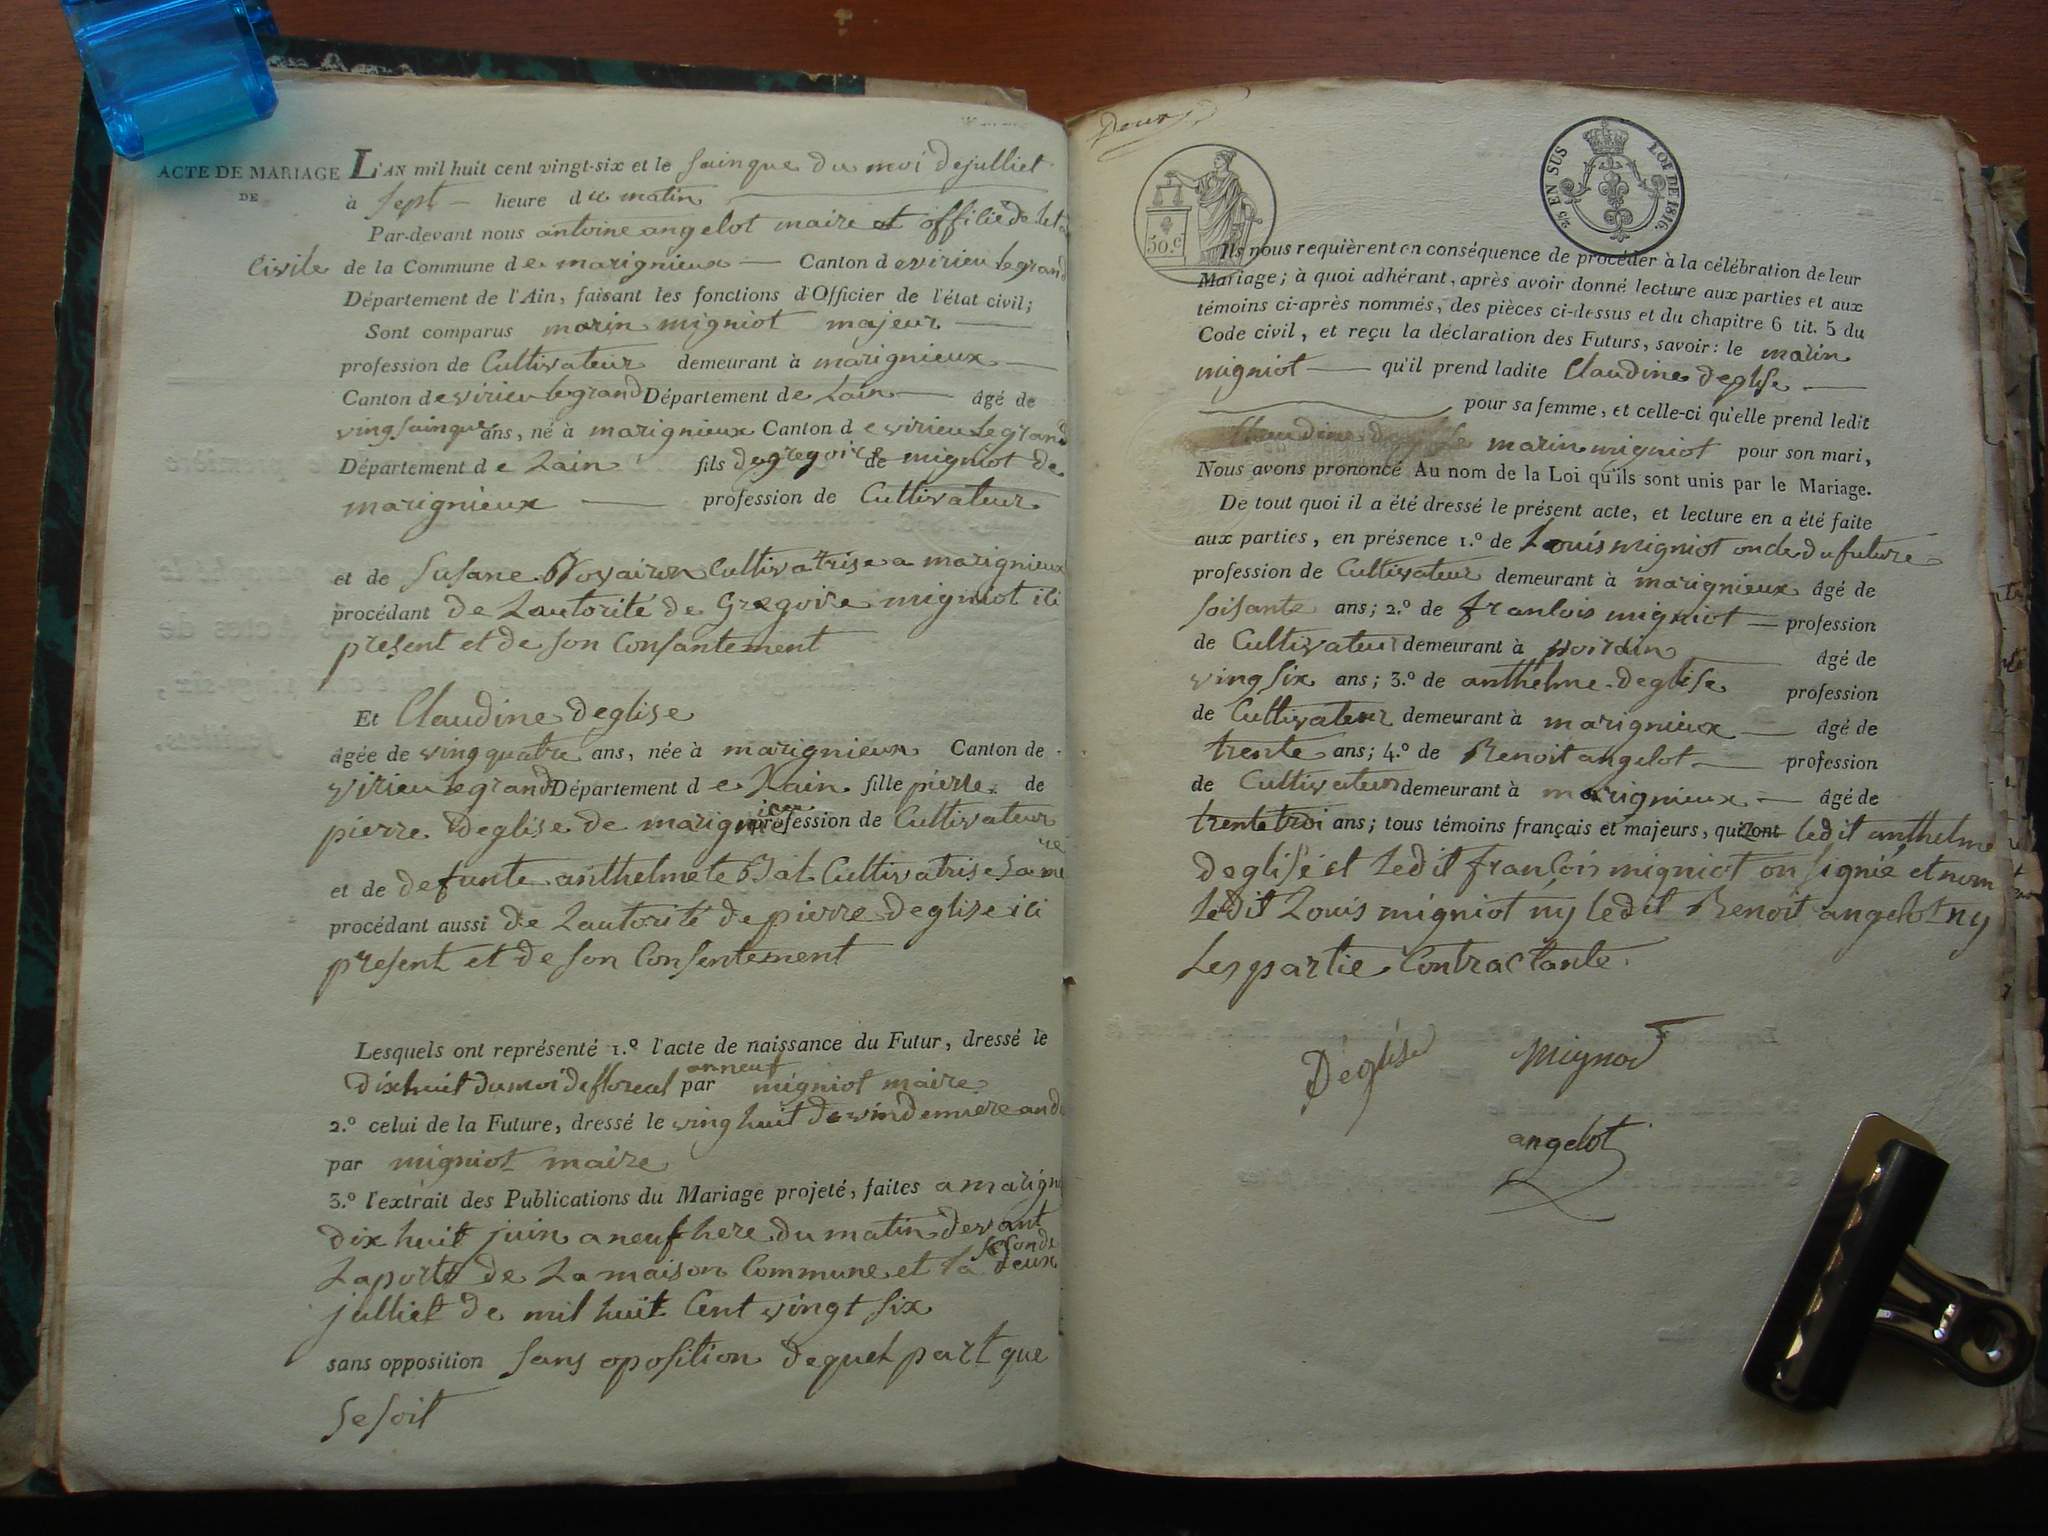 ACTE DE MARIAGE
DE
L'AN mil huit cent vingt-six et le sainque du moi dejulliet
à sept heure du matin
Par-devant nous antoine angelot maire et offilié de let
Civile de la Commune de marignieux Canton de virieu le grand
Département de l'Ain, faisant les fonctions d'Officier de l'état civil;
Sont comparus marin migniot majeur
profession de Cultivateur demeurant à marignieux
Canton de virieu le grand Département de Lain âgé de
ving sainque ans, né à marignieux Canton de virieu le grand
Département de Lain fils de gregoire de migniot de
marignieux profession de Cultivateur
et de Susane Cultivatrise a marignieux
procédant de Lautorité de Gregoire migniot ili
present et de son Consantement
Et Claudine deglise
âgée de ving quatre ans, née à marignieux Canton de
virieu le grand Département de Lain fille pierre de
pierre deglise de marignieux profession de Cultivateur
et de defunte anthelmete Cultivatrise
procédant aussi de Lautorité de pierre deglise ili
present et de son Consentement
Lesquels ont représenté 1.º l'acte de naissance du Futur, dressé le
dix huit du moi de floreal an neuf par migniot maire
2.º celui de la Future, dressé le ving huit de vindemiere an
par migniot maire
3.º l'extrait des Publications du Mariage projeté, faites a marign
dix huit juin a neuf here du matin devant
Laporte de La maison Commune et la segonde deux
julliet de mil huit Cent vingt six
sans opposition sans oposition dequel part que
se soit
Deux
50.c
2/5 EN SUS LOI DE 1816.
Ils nous requièrent en conséquence de procéder à la célébration de leur
Mariage; à quoi adhérant, après avoir donné lecture aux parties et aux
témoins ci-après nommés, des pièces ci-dessus et du chapitre 6 tit. 5 du
Code civil, et reçu la déclaration des Futurs, savoir: le marin
migniot qu'il prend ladite Claudine deglise
pour sa femme, et celle-ci qu'elle prend ledit
marin migniot pour son mari,
Nous avons prononcé Au nom de la Loi qu'ils sont unis par le Mariage.
De tout quoi il a été dressé le présent acte, et lecture en a été faite
aux parties, en présence 1.º de Louis migniot oncle du future
profession de Cultivateur demeurant à marignieux âgé de
soisante ans; 2.º de franlois migniot profession
de Cultivateur demeurant à âgé de
ving six ans; 3.º de anthelme deglise profession
de Cultivateur demeurant à marignieux âgé de
trente ans; 4.º de Benoit angelot profession
de Cultivateur demeurant à marignieux âgé de
trente troi ans; tous témoins français et majeurs, qui ont ledit anthelme
deglise et Ledit franlois migniot on signié et nom
Ledit Louis migniot ny ledit Benoit angelot ny
Les partie Contractante.
Déglise Mignot
angelot